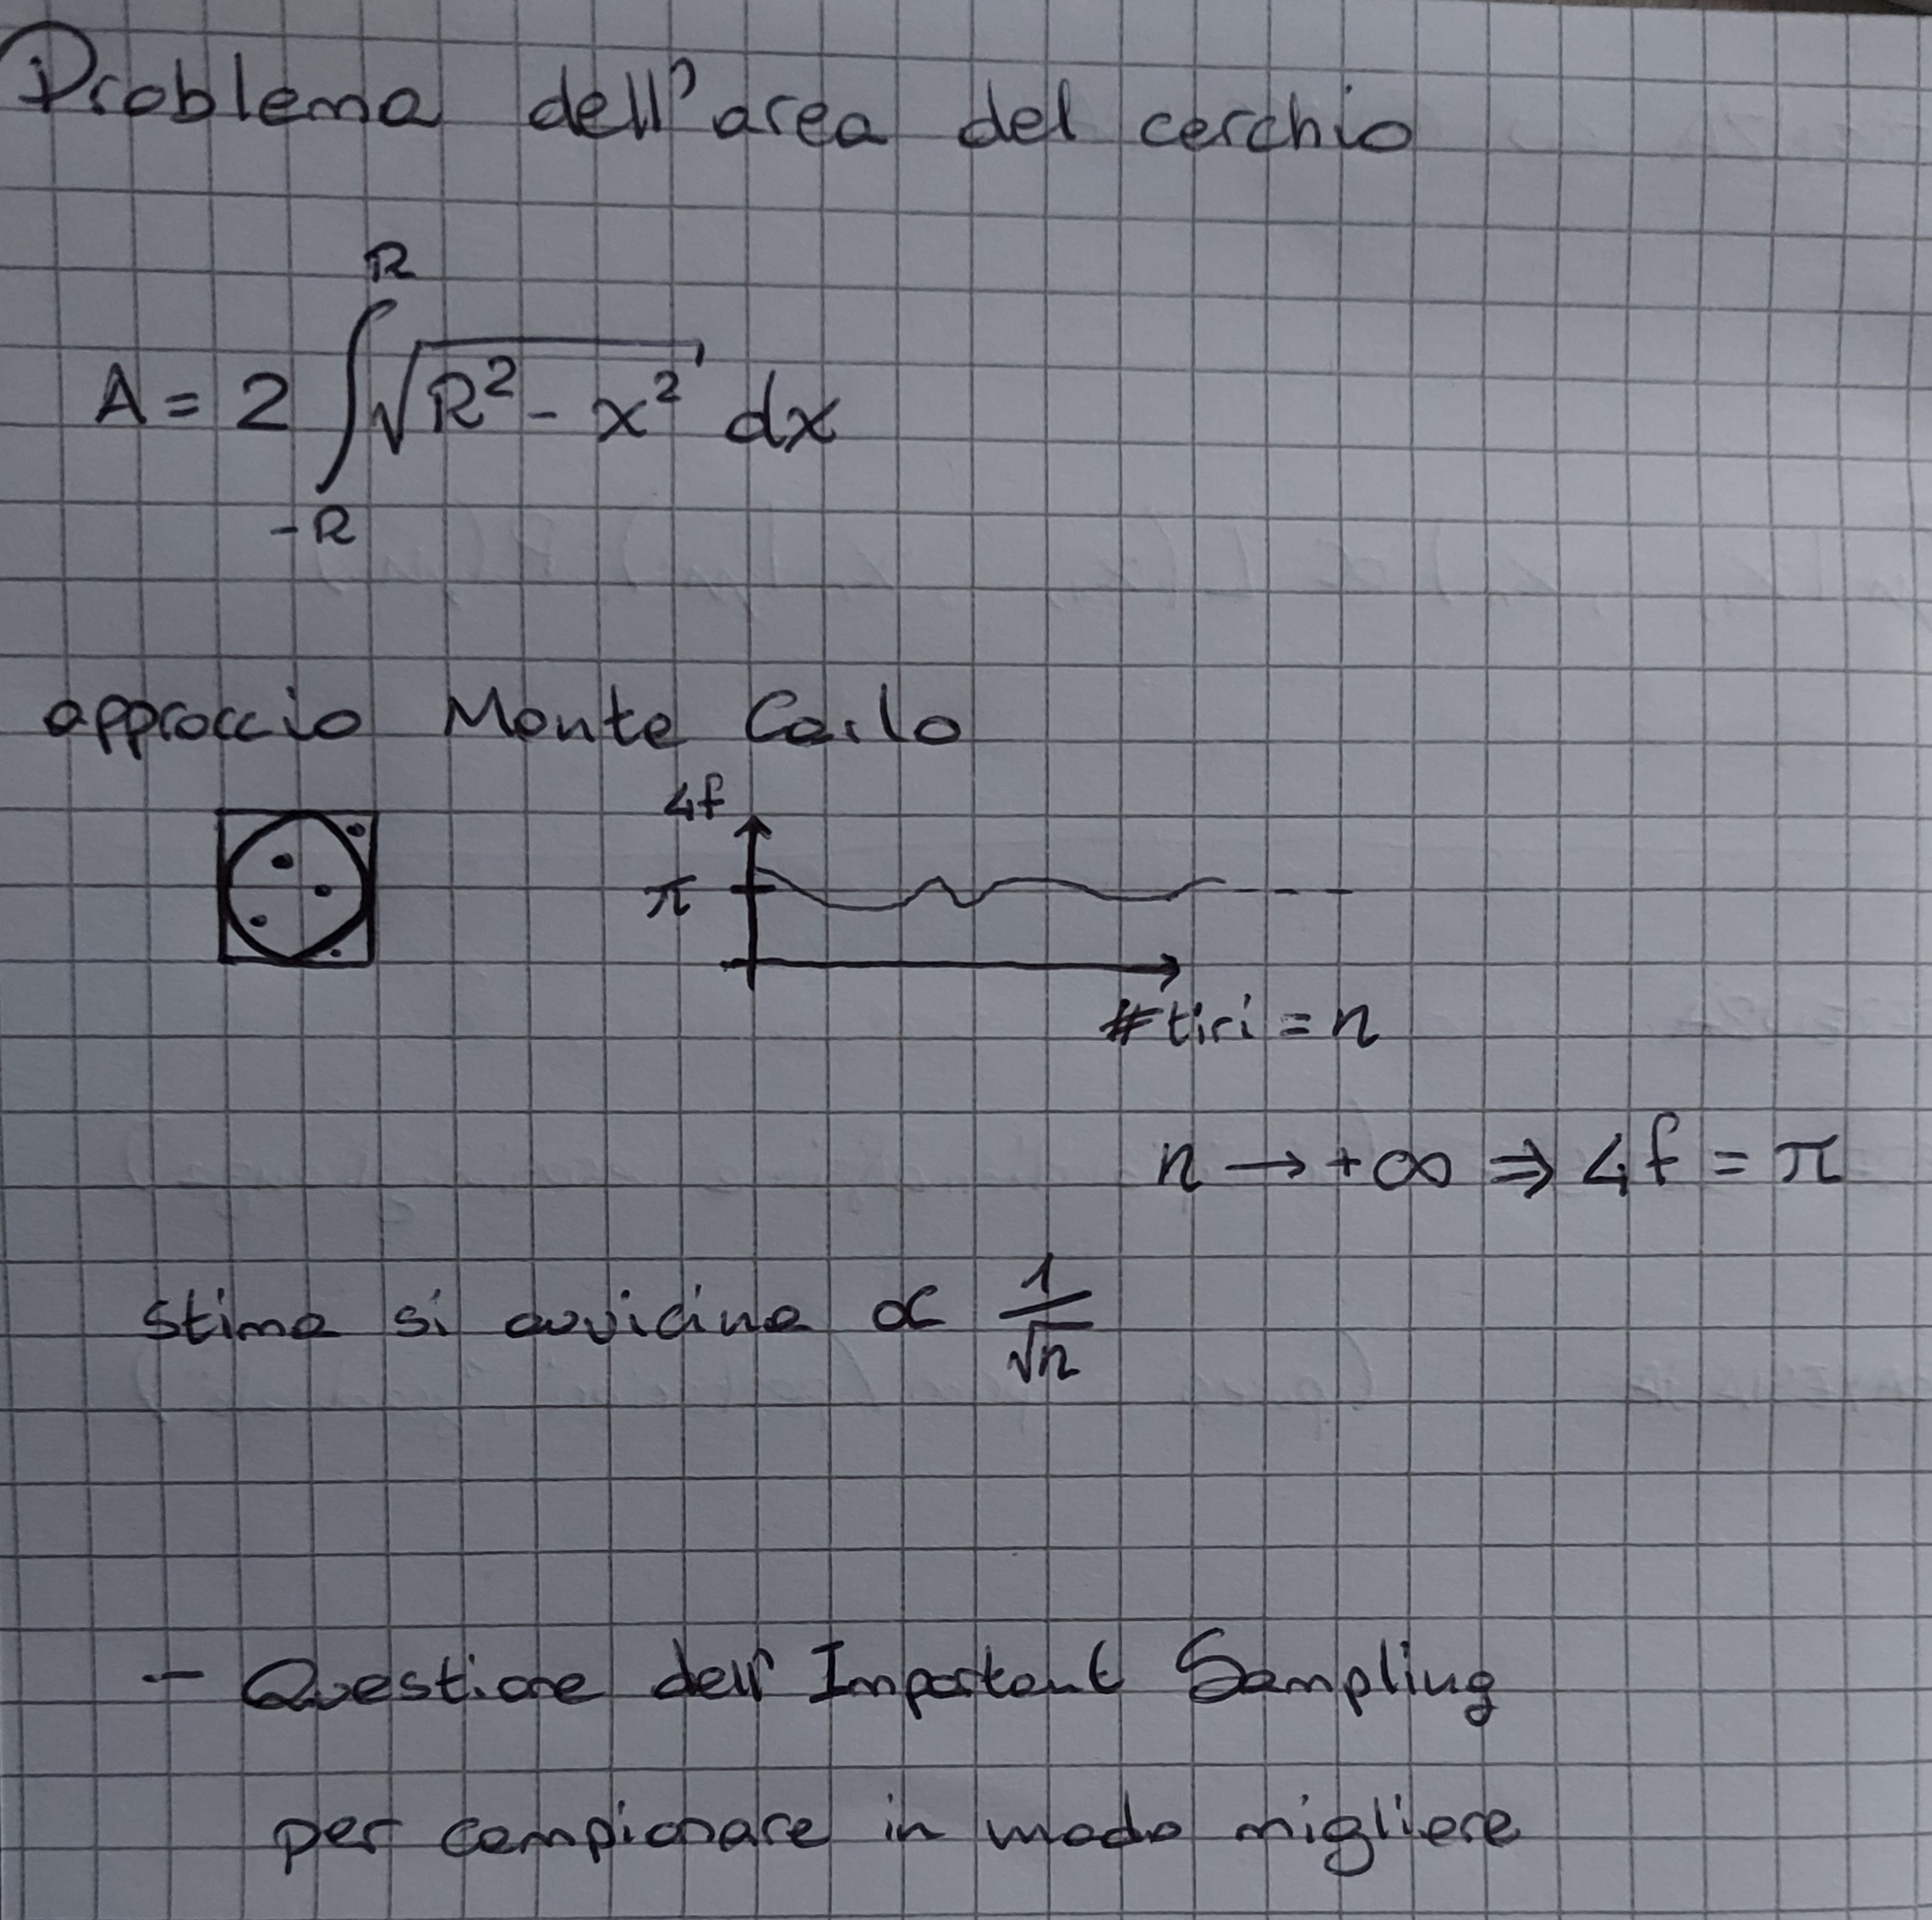 Problema dell'area del cerchio
A = 2 ∫_{-R}^{R} √(R² - x²) dx
approccio Monte Carlo
4f
π
#tiri = n
n → +∞ ⇒ 4f = π
stima si avvicina ∝ 1/√n
- Questione dell'Important Sampling
per campionare in modo migliore